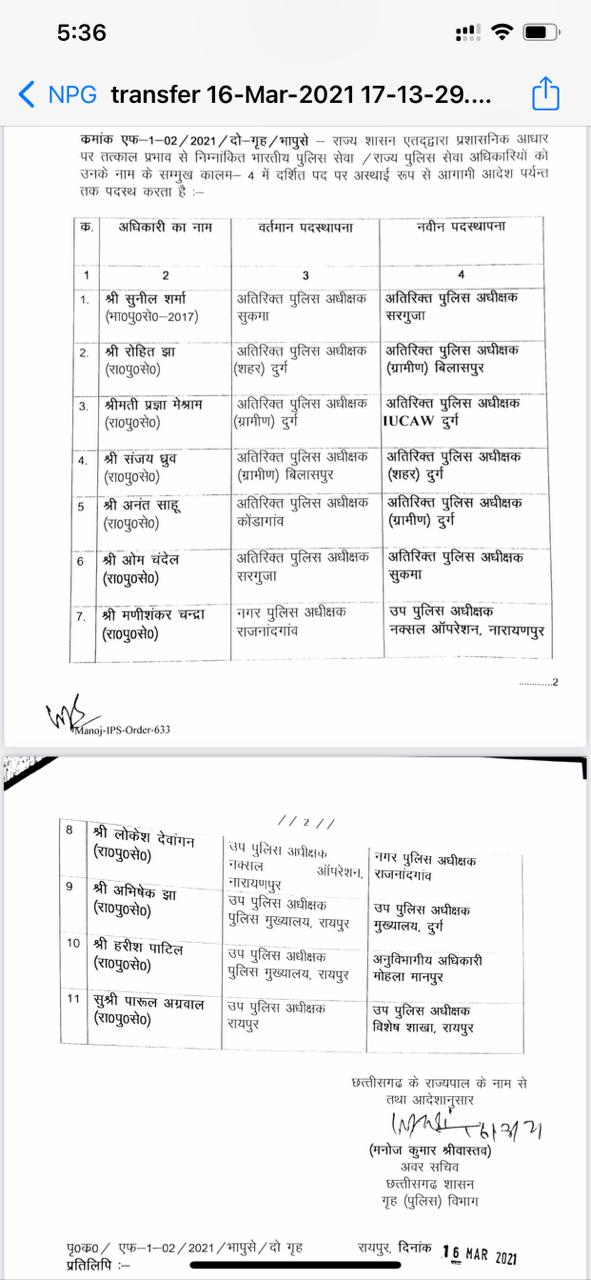 5:36
NPG transfer 16-Mar-2021 17-13-29....
कमांक एफ-1-02/2021/दो-गृह/भापुसे – राज्य शासन एतद्द्वारा प्रशासनिक आधार
पर तत्काल प्रभाव से निम्नांकित भारतीय पुलिस सेवा /राज्य पुलिस सेवा अधिकारियों को
उनके नाम के सम्मुख कालम- 4 में दर्शित पद पर अस्थाई रूप से आगामी आदेश पर्यन्त
तक पदस्थ करता है :–
क. अधिकारी का नाम वर्तमान पदस्थापना नवीन पदस्थापना
1 2 3 4
1. श्री सुनील शर्मा अतिरिक्त पुलिस अधीक्षक अतिरिक्त पुलिस अधीक्षक
(भा0पु0से0-2017) सुकमा सरगुजा
2. श्री रोहित झा अतिरिक्त पुलिस अधीक्षक अतिरिक्त पुलिस अधीक्षक
(रा0पु0से0) (शहर) दुर्ग (ग्रामीण) बिलासपुर
3. श्रीमती प्रज्ञा मेश्राम अतिरिक्त पुलिस अधीक्षक अतिरिक्त पुलिस अधीक्षक
(रा0पु0से0) (ग्रामीण) दुर्ग IUCAW दुर्ग
4. श्री संजय ध्रुव अतिरिक्त पुलिस अधीक्षक अतिरिक्त पुलिस अधीक्षक
(रा0पु0से0) (ग्रामीण) बिलासपुर (शहर) दुर्ग
5 श्री अनंत साहू अतिरिक्त पुलिस अधीक्षक अतिरिक्त पुलिस अधीक्षक
(रा0पु0से0) कोंडागांव (ग्रामीण) दुर्ग
6 श्री ओम चंदेल अतिरिक्त पुलिस अधीक्षक अतिरिक्त पुलिस अधीक्षक
(रा0पु0से0) सरगुजा सुकमा
7. श्री मणीशंकर चन्द्रा नगर पुलिस अधीक्षक उप पुलिस अधीक्षक
(रा0पु0से0) राजनांदगांव नक्सल ऑपरेशन, नारायणपुर
............2
Manoj-IPS-Order-633
// 2 //
8 श्री लोकेश देवांगन उप पुलिस अधीक्षक नगर पुलिस अधीक्षक
(रा0पु0से0) नक्सल ऑपरेशन, राजनांदगांव
नारायणपुर
9 श्री अभिषेक झा उप पुलिस अधीक्षक उप पुलिस अधीक्षक
(रा0पु0से0) पुलिस मुख्यालय, रायपुर मुख्यालय, दुर्ग
10 श्री हरीश पाटिल उप पुलिस अधीक्षक अनुविभागीय अधिकारी
(रा0पु0से0) पुलिस मुख्यालय, रायपुर मोहला मानपुर
11 सुश्री पारूल अग्रवाल उप पुलिस अधीक्षक उप पुलिस अधीक्षक
(रा0पु0से0) रायपुर विशेष शाखा, रायपुर
छत्तीसगढ के राज्यपाल के नाम से
तथा आदेशानुसार
(मनोज कुमार श्रीवास्तव)
अवर सचिव
छत्तीसगढ शासन
गृह (पुलिस) विभाग
पृ0क0/ एफ-1-02/2021/भापुसे/दो गृह रायपुर, दिनांक 16 MAR 2021
प्रतिलिपि :–